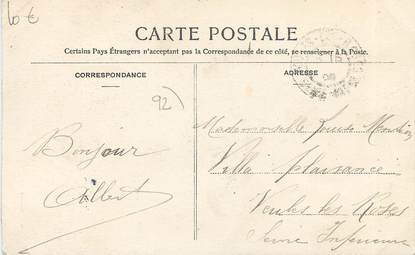 6 €
CARTE POSTALE
Certains Pays Étrangers n'acceptant pas la Correspondance de ce côté, se renseigner à la Poste.
CORRESPONDANCE
ADRESSE
92)
Mademoiselle Louise
Bonjour
Villa plaisance
Albert
Veules les Roses
Seine Inférieure